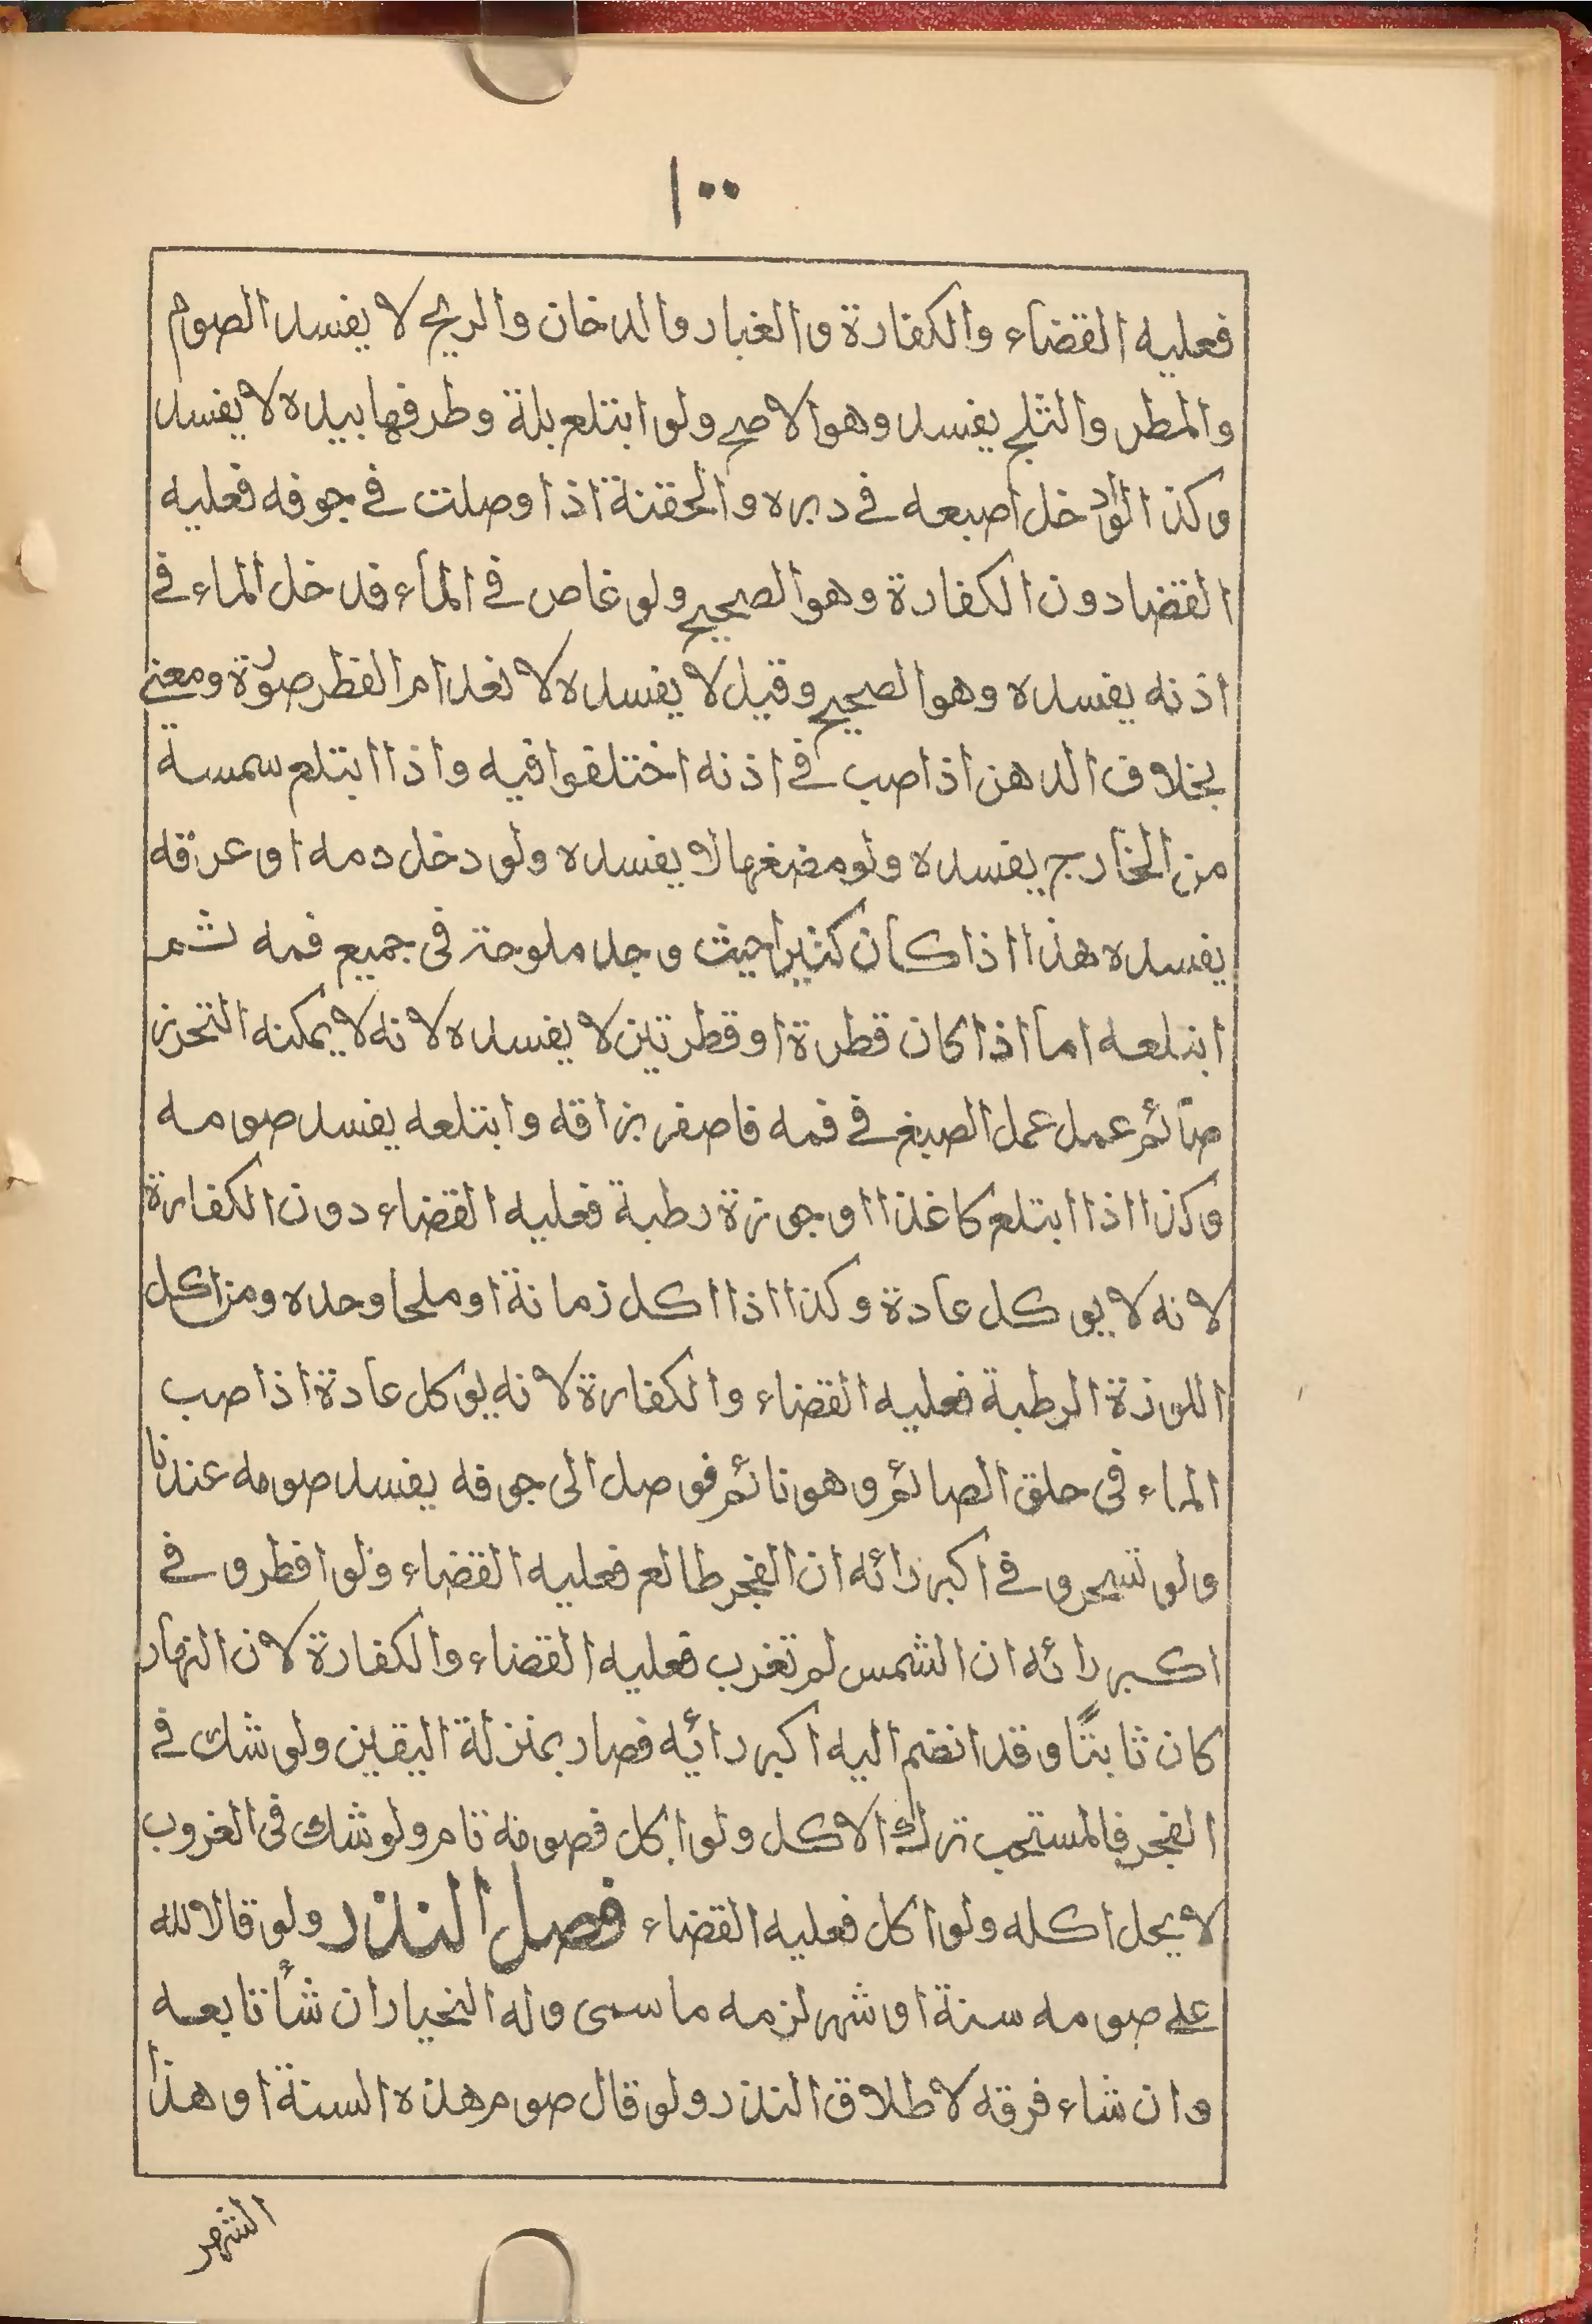 ١٠٠
فعليه القضاء والكفارة والغبار والدخان والريح لا يفسد الصوم
والمطر والثلج يفسد وهو الاصح ولو ابتلع بلة وطرفها بيده لا يفسد
وكذا لو ادخل اصبعه في دبره والحقنة اذا وصلت في جوفه فعليه
القضا دون الكفارة وهو الصحيح ولو غاص في الماء فدخل الماء في
اذنه يفسده وهو الصحيح وقيل لا يفسده لا نعدام الفطر صورة ومعنى
بخلاف الدهن اذا صب في اذنه اختلفوا فيه واذا ابتلع سمسة
من الخارج يفسده ولو مضغها لا يفسده ولو دخل دمه او عرقه
يفسده هذا اذا كان كثيرا حيث وجد ملوحته في جميع فمه ثم
ابتلعه اما اذا كان قطرة او قطرتين لا يفسده لانه لا يمكنه التحرز
صائم عمل عمل الصبغ في فمه فاصفر بزاقه وابتلعه يفسد صومه
وكذا اذا ابتلع كاغذا او جوزة رطبة فعليه القضاء دون الكفارة
لانه لا يوكل عادة وكذا اذا اكل زمانة او ملحا وحده ومن اكل
اللوزة الرطبة فعليه القضاء والكفارة لانه يوكل عادة اذا صب
الماء في حلق الصائم وهو نائم فوصل الى جوفه يفسد صومه عندنا
ولو تسحرو في اكبر رائه ان الفجر طالع فعليه القضاء ولو افطر و في
اكبر رائه ان الشمس لم تغرب فعليه القضاء والكفارة لان النهار
كان ثابتًا وقد انضم اليه اكبر رائيه فصار بمنزلة اليقين ولو شك في
الفجر فالمستحب ترك الاكل ولو اكل فصومه تام ولو شك في الغروب
لا يحل اكله ولو اكل فعليه القضاء فصل النذر ولو قال لله
علي صومه سنة او شهر لزمه ما سمى وله الخيار ان شأ تابعه
وان شاء فرقه لاطلاق النذر ولو قال صوم هذه السنة او هذا
الشهر